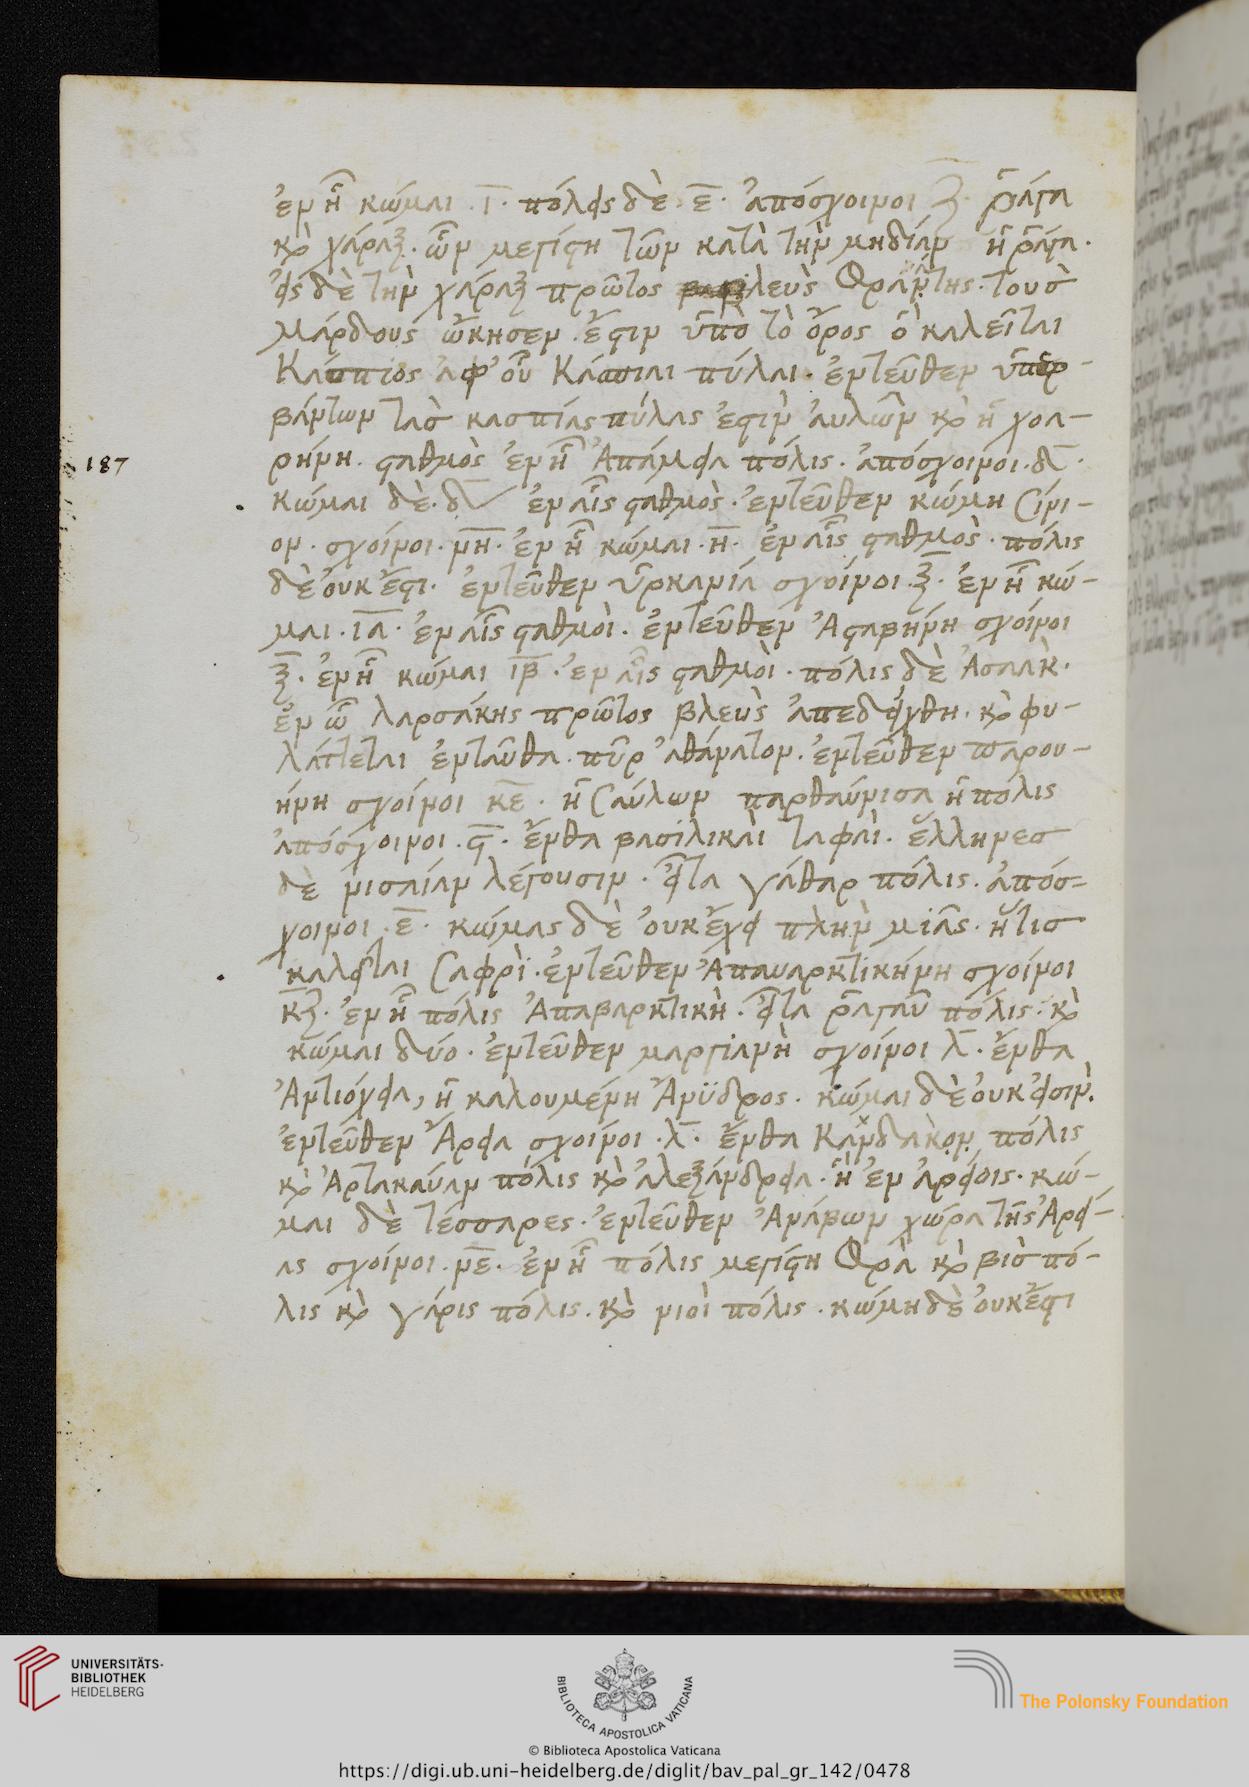 ἐν ᾗ κῶμαι .ι̅. πόλεις δὲ .ε̅. ἀπόσχοινοι ζ̅. ῥάγα
καὶ χάραξ. ὧν μεγίστη τῶν κατὰ τὴν μηδίαν ἡ ῥάγα.
εἰς δὲ τὴν χάραξ πρῶτος βασιλεὺς Φραάτης τοὺς
Μάρδους ᾤκησεν. ἔστιν ὑπὸ τὸ ὄρος ὃ καλεῖται
Κάσπιος ἀφ' οὗ Κάσπιαι πύλαι. ἐντεῦθεν ὑπερ-
βάντων τὰς κασπίας πύλας ἐστὶν αὐλὼν καὶ ἡ χοα-
ρηνή. σταθμὸς ἐν ᾗ Ἀπάμεια πόλις. ἀπόσχοινοι .δ̅.
κῶμαι δὲ .δ̅ ἐν αἷς σταθμὸς. ἐντεῦθεν κώμη Σίνι-
ον. σχοίνοι .νη̅. ἐν ᾗ κῶμαι .η̅. ἐν αἷς σταθμὸς. πόλις
δὲ οὐκ ἔστι. ἐντεῦθεν ὑρκανία σχοίνοι .ξ̅. ἐν ᾗ κῶ-
μαι .ια̅. ἐν αἷς σταθμοὶ. ἐντεῦθεν Ἀσταβηνὴ σχοίνοι
ξ̅. ἐν ᾗ κῶμαι ιβ̅. ἐν αἷς σταθμοὶ. πόλις δὲ Ἀσαὰκ.
ἐν ᾧ λαρσάκης πρῶτος βλεὺς ἀπεδείχθη. καὶ φυ-
λάττεται ἐνταῦθα πῦρ ἀθάνατον. ἐντεῦθεν παρου-
ήνη σχοίνοι κε̅. ἡ Σαύλων παρθαύνισα ἡ πόλις
ἀπόσχοινοι .ϛ̅. ἔνθα βασιλικαὶ ταφαὶ. ἕλληνες
δὲ νισαίαν λέγουσιν. εἶτα γάθαρ πόλις. ἀπόσ-
χοινοι .ε̅. κώμας δὲ οὐκ ἔχει πλὴν μιᾶς. ἥτις
καλεῖται Σαφρὶ. ἐντεῦθεν Ἀπαυαρκτικήνη σχοίνοι
κζ̅. ἐν ᾗ πόλις Ἀπαβαρκτικὴ. εἶτα ῥαγαῦ πόλις. καὶ
κῶμαι δύο. ἐντεῦθεν μαργιανὴ σχοίνοι λ̅. ἔνθα
Ἀντιόχεια, ἡ καλουμένη Ἄνϋδρος. κῶμαι δὲ οὐκ εἰσιν.
ἐντεῦθεν Ἄρεια σχοίνοι .λ̅. ἔνθα Κανδὰκον πόλις
καὶ Ἀρτακαύαν πόλις καὶ ἀλεξάνδρεια. ἡ ἐν ἀρείοις. κῶ-
μαι δὲ τέσσαρες. ἐντεῦθεν Ἀνάβων χώρα τῆς Ἀρεί-
ας σχοίνοι .νε̅. ἐν ᾗ πόλις μεγίστη Φρὰ καὶ βισ πό-
λις καὶ γάρις πόλις. καὶ νιοὶ πόλις. κώμη δὲ οὐκ ἔστι
187
UNIVERSITÄTS-
BIBLIOTHEK
HEIDELBERG
BIBLIOTECA APOSTOLICA VATICANA
© Biblioteca Apostolica Vaticana
The Polonsky Foundation
https://digi.ub.uni-heidelberg.de/diglit/bav_pal_gr_142/0478